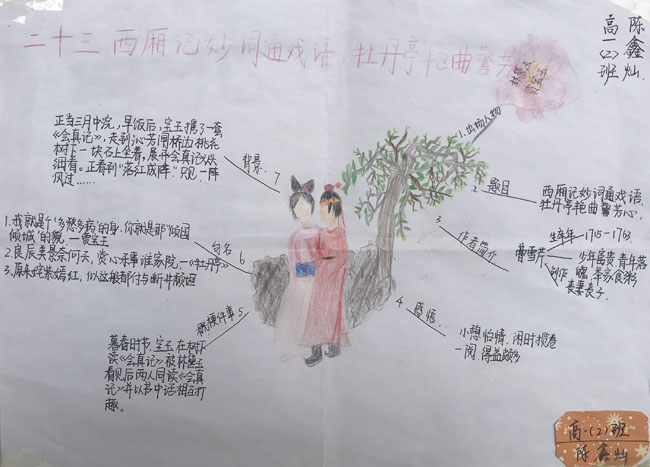 二十三 西厢记妙词通戏语 牡丹亭艳曲警芳心
陈鑫灿
高一(2)班
林黛玉
贾宝玉
1.出场人物
2 题目
西厢记妙词通戏语,
牡丹亭艳曲警芳心,
3 作者简介
曹雪芹
生卒年 1715-1763
少年富贵 青年落
举家食粥
4 感悟:
小憩怡情,闲时揽卷
一阅,得益颇多
梗件事 5
暮春时节,宝玉在树下
读《会真记》被林黛玉
看见后两人同读《会真
记》并以书中话相互打
趣。
名句 6
1.我就是个"多愁多病"的身,你就是那"倾国
倾城"的貌,一贾宝玉
2.良辰美景奈何天,赏心乐事谁家院,一《牡丹亭》
3.原来姹紫嫣红,似这般都付与断井颓园
背景. 7
正当三月中浣,早饭后,宝玉携了一套
《会真记》,走到沁芳闸桥边桃花
树下一块石上坐着,展开会真记从头
细看。正看到"落红成阵"只见一阵
风过……
高一(2)班
陈鑫灿